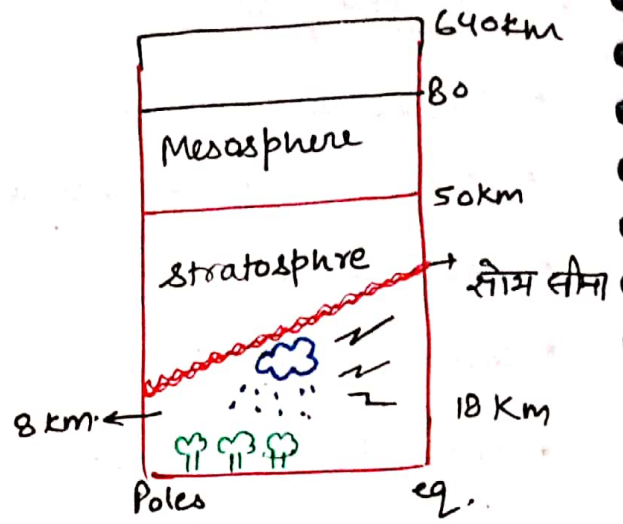 640km
80
Mesosphere
50km
Stratosphre
सोम सीमा
8 km.
18 Km
Poles
eq.